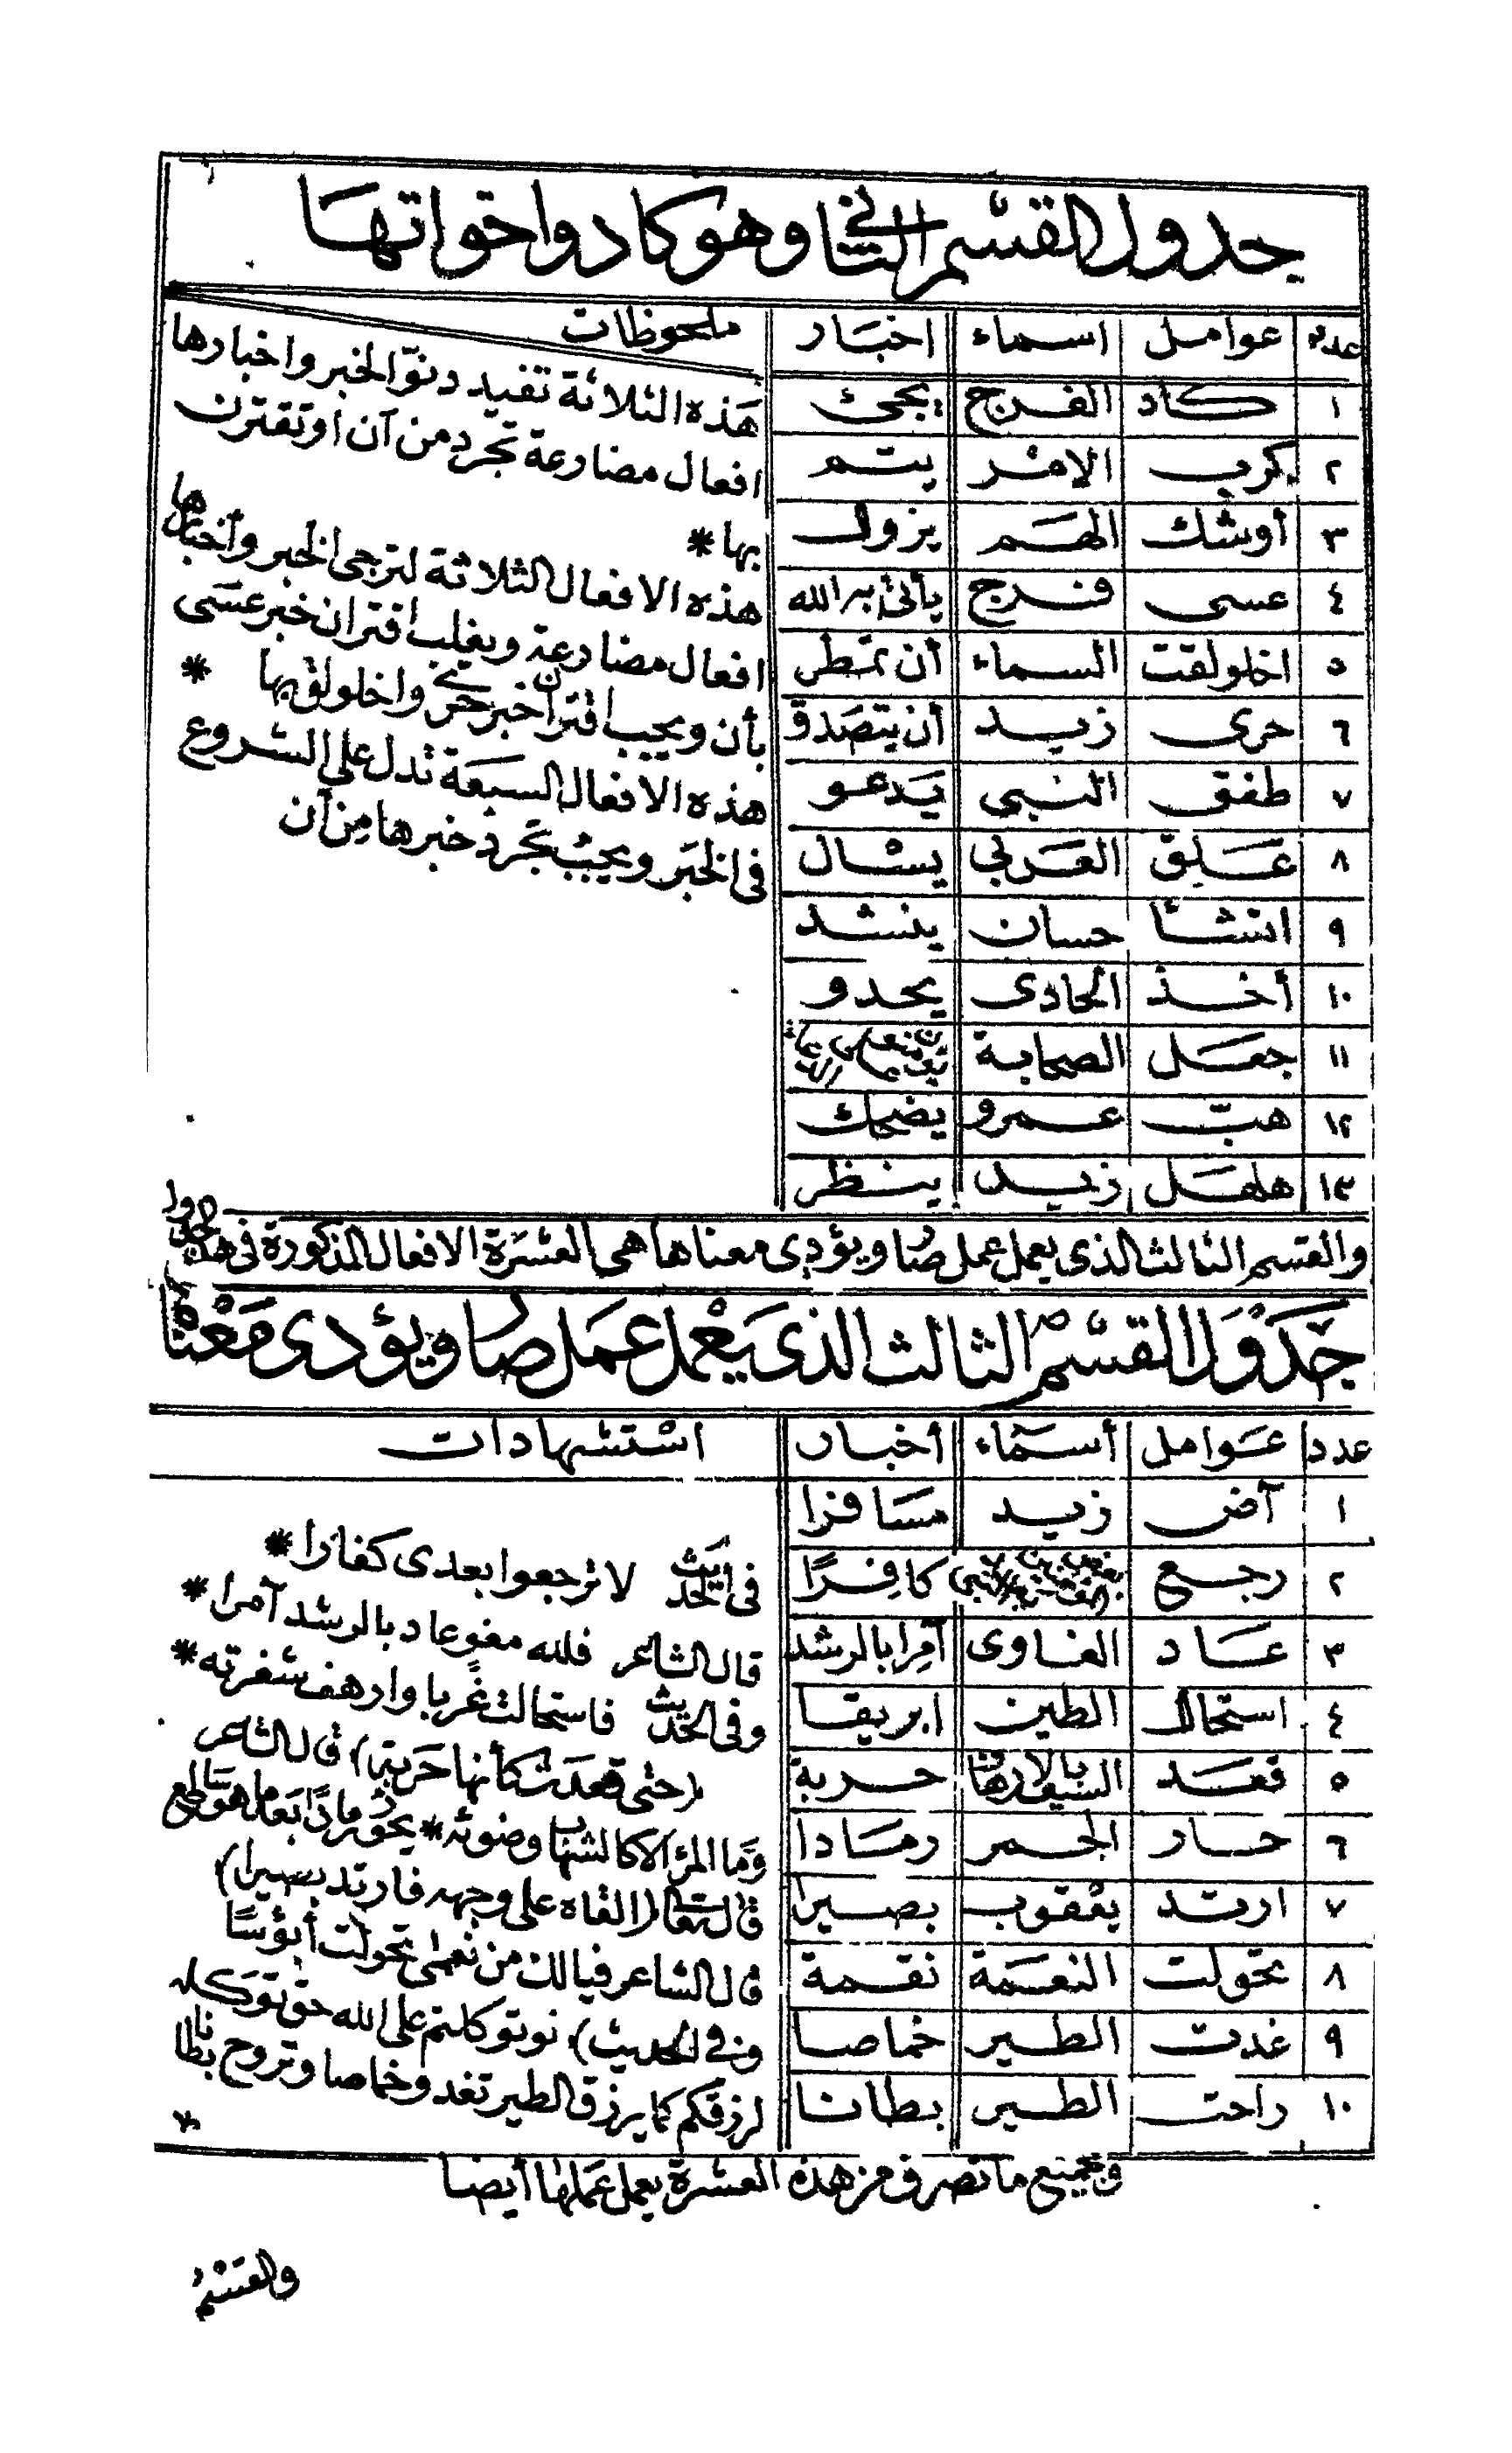 جدول القسم الثاني وهو كاد واخواتها
عدد عوامل اسماء اخبار ملحوظات
١ كاد الفرج يجئ
٢ كرب الامر يتم
٣ أوشك الهم يزول
٤ عسى فرج يأتي به الله
٥ اخلولقت السماء أن تمطر
٦ حرى زيد أن يتصدق
٧ طفق النبي يدعو
٨ علق العربي يسأل
٩ انشأ حسان ينشد
١٠ أخذ الحادى يحدو
١١ جعل الصحابة
١٢ هبّ عمرو يضحك
١٣ هلهل زيد ينظر
هذه الثلاثة تفيد دنوّ الخبر واخبارها
افعال مضارعة تجرد من آن او تقترن
بها *
هذه الافعال الثلاثة لترجى الخبر وأخبارها
افعال مضارعة ويغلب اقتران خبر عسى
بأن ويجب اقتران خبر حرى واخلولق بها *
هذه الافعال السبعة تدل على الشروع
فى الخبر ويجب تجرد خبرها من آن
والقسم الثالث الذى يعمل عمل صار ويؤدى معناها هى العشرة الافعال المذكورة فى هذا الجدول
جدول القسم الثالث الذى يعمل عمل صار ويؤدى معناها
عدد عوامل أسماء أخبار استشهادات
١ آض زيد مسافرا
٢ رجع كافرًا
٣ عاد الغاوى آمرا بالرشد
٤ استحال الطين ابريقا
٥ قعد السيف بالارهاف حربة
٦ حار الجمر رمادا
٧ ارتد يعقوب بصيرا
٨ تحولت النعمة نقمة
٩ غدت الطير خماصا
١٠ راحت الطير بطانا
فى الحديث لا ترجعوا بعدى كفارا *
قال الشاعر فلله مغو عاد بالرشد آمرا *
وفى الحديث فاستحالت غربا وارهف شفرته *
(حتى قعدت كأنها حربة) قال الشاعر
وما المرء الا كالشهاب وضوئه * يحور رمادًا بعد ما هو ساطع
قال تعالى (القاه على وجهه فارتد بصيرا)
قال الشاعر فيالك من نعمى تحولت أبؤسًا
وفي الحديث) لو توكلتم على الله حق توكله
لرزقكم كما يرزق الطير تغدو خماصا وتروح بطانا
وجميع ما تصرف من هذه العشرة يعمل عملها أيضا
والقسم